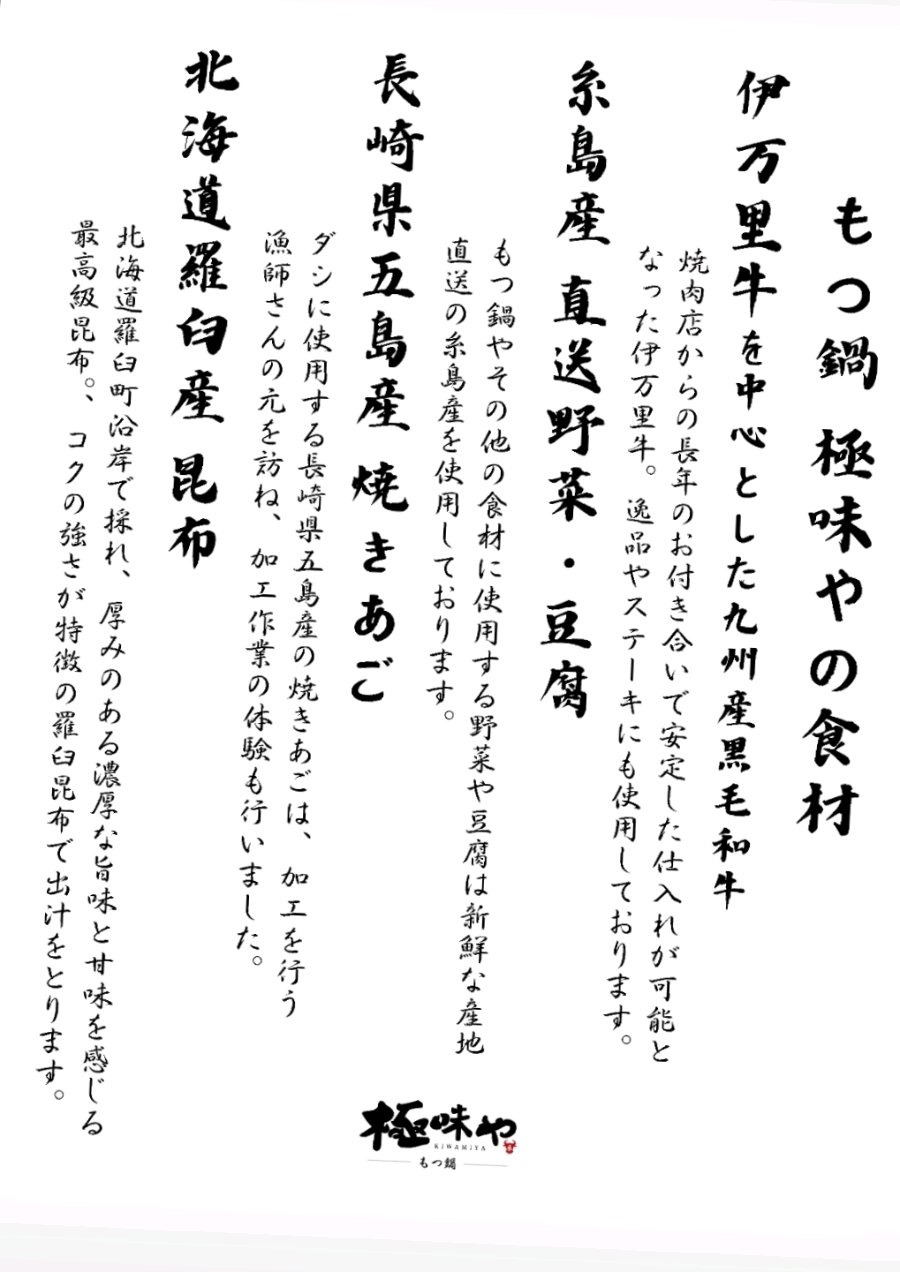 もつ鍋 極味やの食材
伊万里牛を中心とした九州産黒毛和牛
焼肉店からの長年のお付き合いで安定した仕入れが可能と
なった伊万里牛。逸品やステーキにも使用しております。
糸島産 直送野菜・豆腐
もつ鍋やその他の食材に使用する野菜や豆腐は新鮮な産地
直送の糸島産を使用しております。
長崎県五島産 焼きあご
ダシに使用する長崎県五島産の焼きあごは、加工を行う
漁師さんの元を訪ね、加工作業の体験も行いました。
北海道羅臼産 昆布
北海道羅臼町沿岸で採れ、厚みのある濃厚な旨味と甘味を感じる
最高級昆布。、コクの強さが特徴の羅臼昆布で出汁をとります。
極味や
KIWAMIYA
もつ鍋